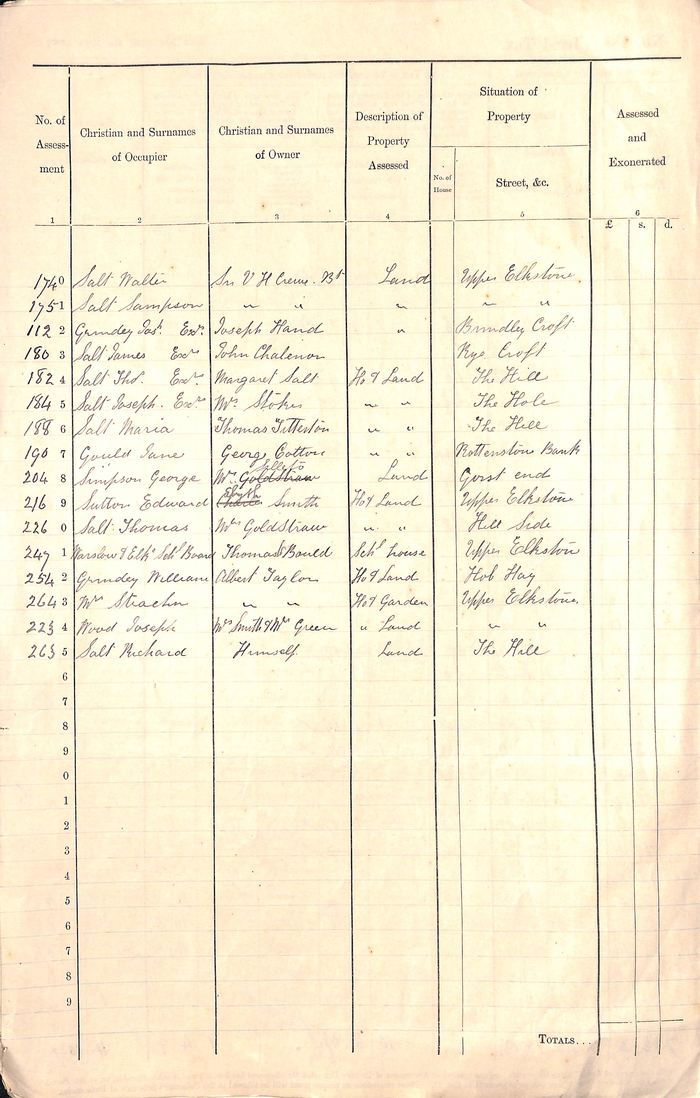 No. of Assess-ment | Christian and Surnames of Occupier | Christian and Surnames of Owner | Description of Property Assessed | Situation of Property | Assessed and Exonerated
No. of House | Street, &c.
1 2 3 4 5 6
£ s. d.
174 0 Salt Walter Sir V H Crewe. Bt Land Upper Elkstone
175 1 Salt Sampson " " " " "
112 2 Grindey Jas. Exrs Joseph Hand " Brindley Croft
180 3 Salt James Exrs John Rye Croft
182 4 Salt Thos. Exrs Margaret Salt Ho & Land The Hill
184 5 Salt Joseph. Exrs Mrs Stokes " " The Hole
188 6 Salt Maria Thomas Titterton " " The Hill
190 7 Gould Jane George Cotton " " Rottenstone Bank
204 8 Simpson George Mrs Goldstraw Land Gorst end
216 9 Sutton Edward Smith Ho & Land Upper Elkstone
226 0 Salt Thomas Mrs Goldstraw " " Hill Side
247 1 Warslow & Elkn Schl Board Thomas Bould Schl house Upper Elkston
254 2 Grindey William Albert Taylor Ho & Land Hob Hay
264 3 Mrs Strachn " " Ho & Garden Upper Elkstone.
223 4 Wood Joseph Mrs Smith & Mrs Green " Land " "
263 5 Salt Richard Himself. Land The Hill
6
7
8
9
0
1
2
3
4
5
6
7
8
9
TOTALS...